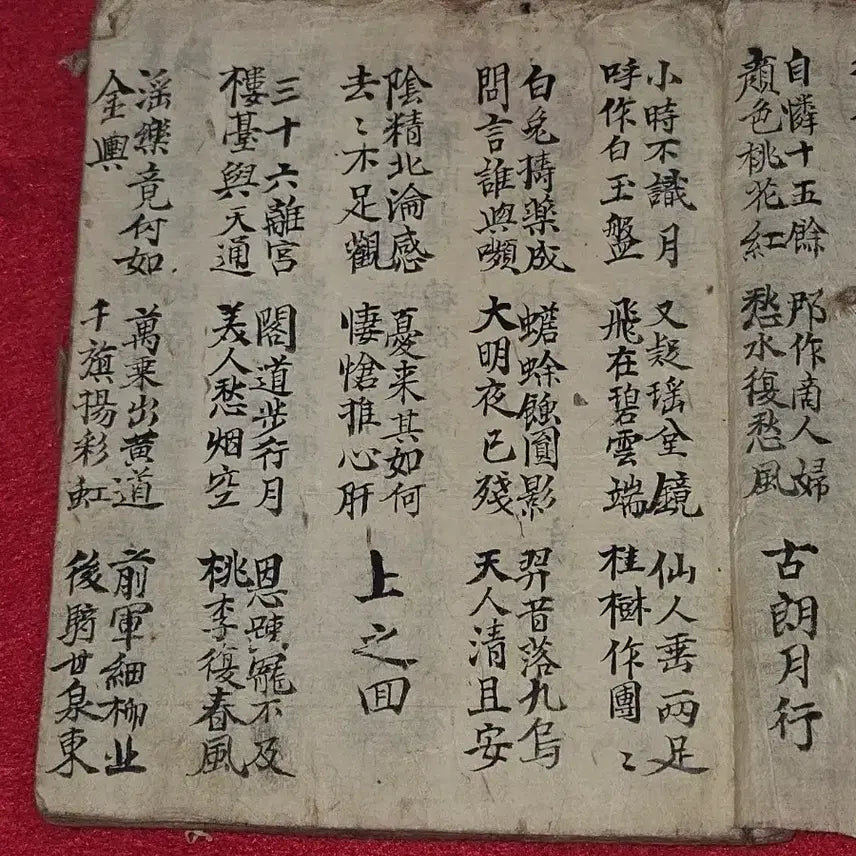 自憐十五餘
顏色桃花紅
那作商人婦
愁水復愁風
古朗月行
小時不識月
呼作白玉盤
又疑瑶全鏡
飛在碧雲端
仙人垂兩足
桂樹作團〻
白兔擣藥成
問言誰與嚬
蟾蜍蝕圓影
大明夜已殘
羿昔落九烏
天人清且安
陰精北淪感
去〻不足觀
憂来其如何
悽愴摧心肝
上之回
三十六離宮
樓臺與天通
閣道步行月
美人愁烟空
恩踈寵不及
桃李復春風
淫樂竟何如
金輿
萬乘出黃道
千旗揚彩虹
前軍細柳北
後騎甘泉東